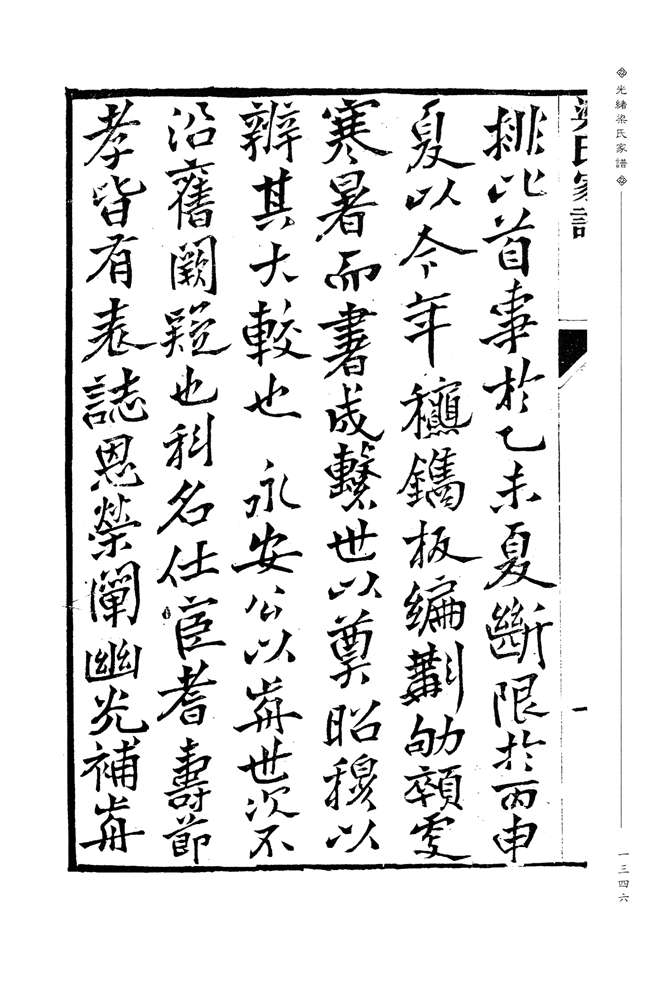 光緒梁氏家譜
一三四六
梁氏家譜
一
排比首事於乙未夏斷限於丙申
夏以今年龝鐫板編劬顇
寒暑而書成繫世以奠昭穆以
辨其大較也 永安公以歬世次不
沿舊闕疑也科名仕宦耆壽節
孝皆有表誌恩榮闡幽光補歬